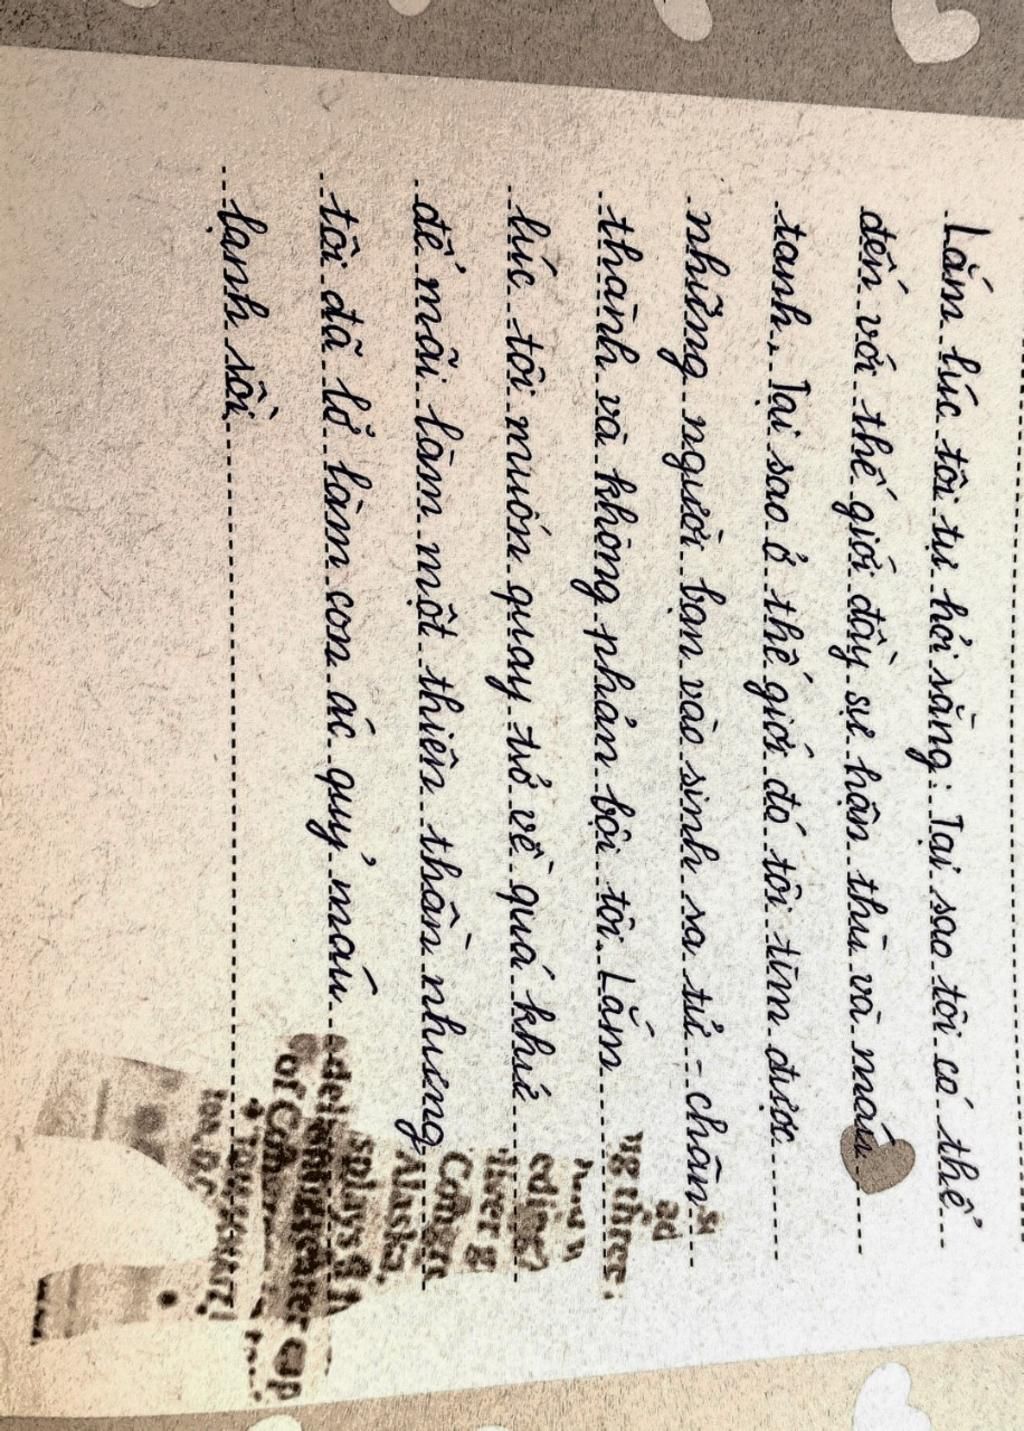 Lắm lúc tôi tự hỏi rằng: Tại sao tôi có thể
đến với thế giới đầy sự hận thù và máu
tanh, Tại sao ở thế giới đó tôi tìm được
những người bạn vào sinh ra tử - chân
thành và không phản bội tôi. Lắm
lúc tôi muốn quay trở về quá khứ
để mãi làm một thiên thần nhưng
tôi đã lỡ làm con ác quỷ máu
lạnh rồi.
ad
ug three.
Alaska,
splays